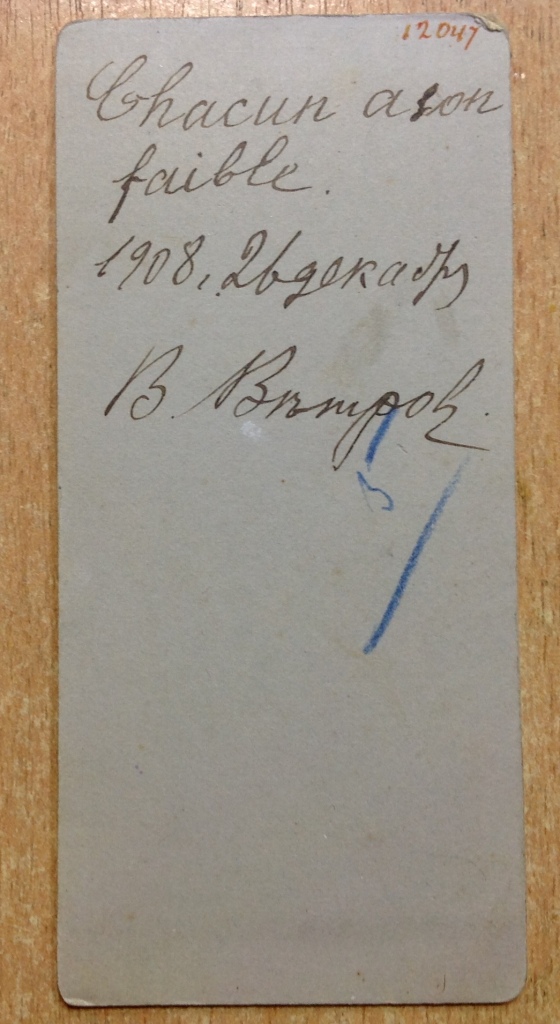 12047
Chacun a son
faible.
1908, 26 декабря
В. Вѣтров